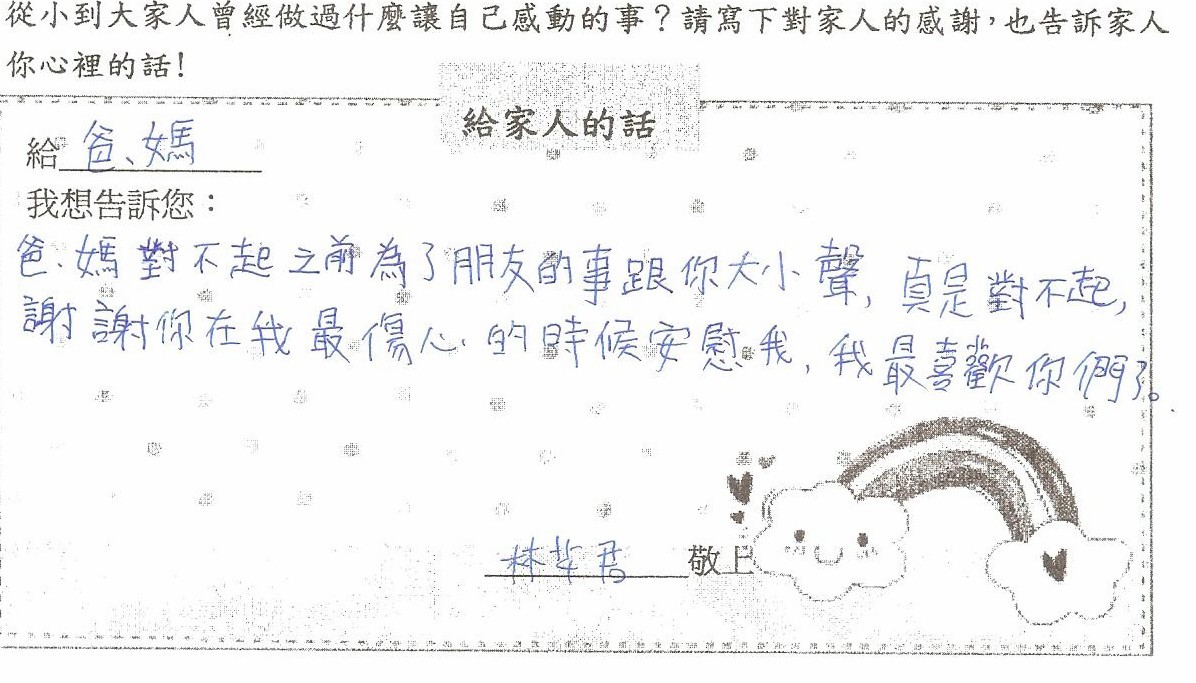 從小到大家人曾經做過什麼讓自己感動的事？請寫下對家人的感謝，也告訴家人
你心裡的話！
給家人的話
給爸、媽
我想告訴您：
爸、媽對不起之前為了朋友的事跟你大小聲，真是對不起，
謝謝你在我最傷心的時候安慰我，我最喜歡你們了。
林 君 敬上